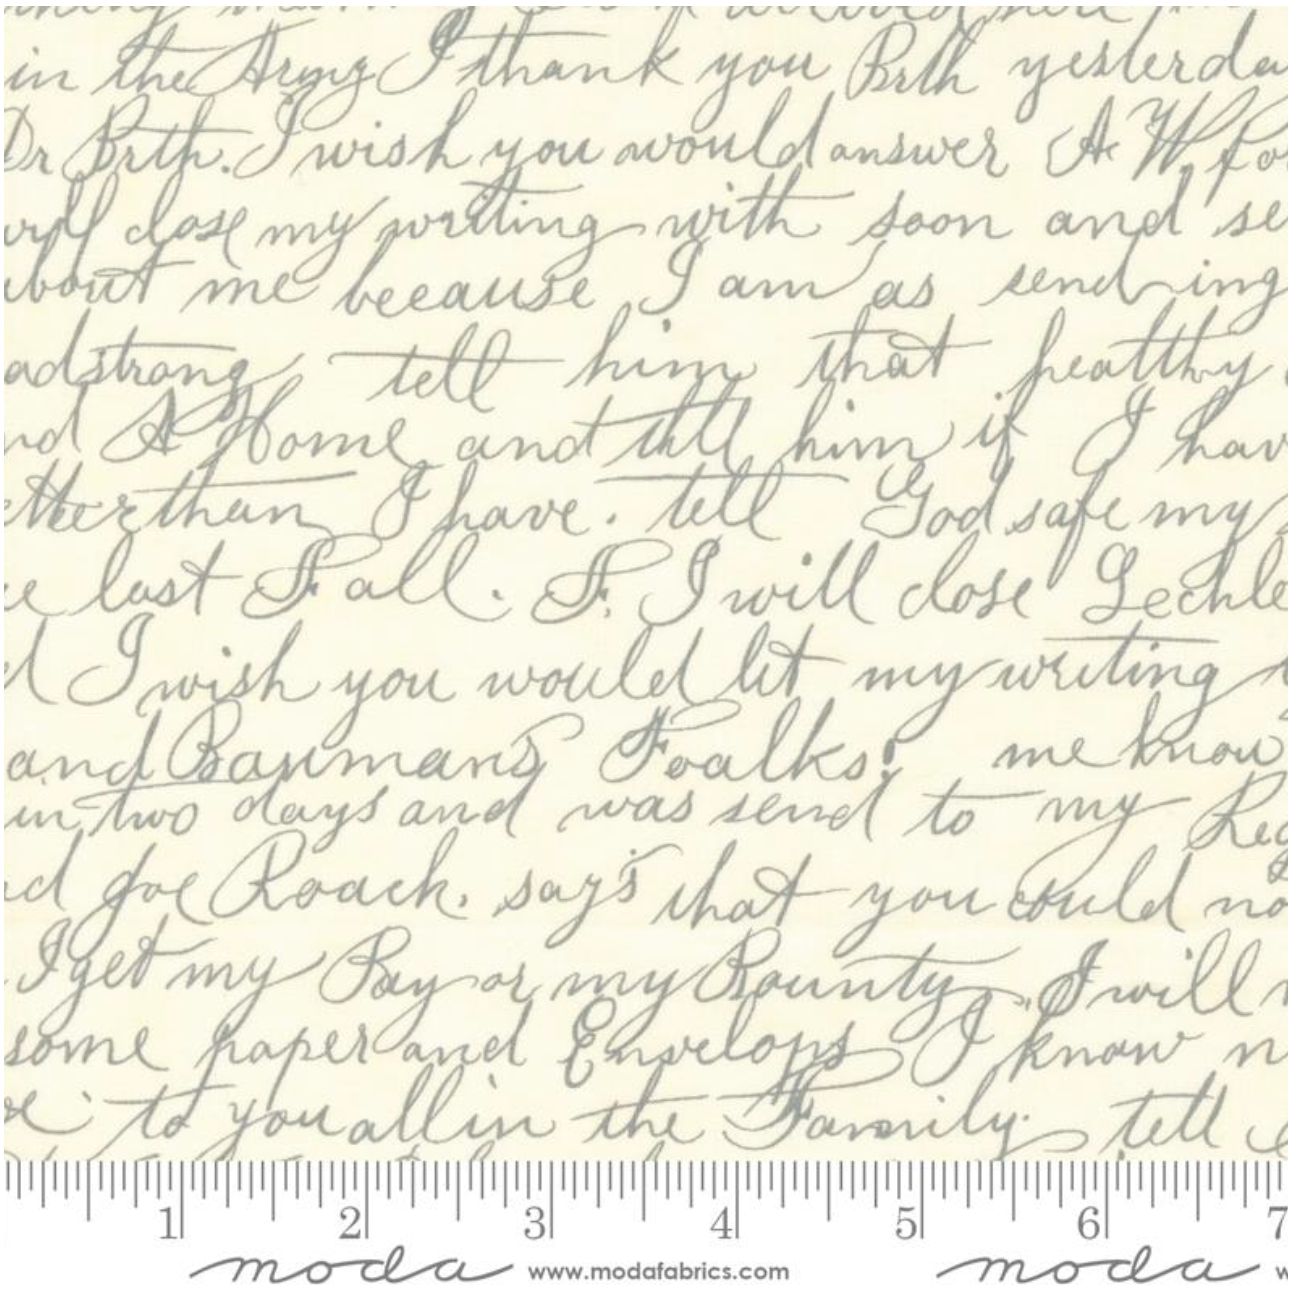 in the Army I thank you Brth yesterda
Dr Brth. I wish you would answer A W
will close my writing with soon and se
about me because I am as sending
adstrong tell him that healthy
nd A Home and tell him if I hav
etter than I have. tell God safe my
e last Fall. F. I will close Lechle
d I wish you would let my writing
and Baumans Foalks! me know
in two days and was send to my Reg
nd Joe Roach. say's that you could no
I get my Pay or my Bounty. I will
some paper and Envelops I know n
to you all in the Family. tell
1 2 3 4 5 6 7
moda www.modafabrics.com moda w